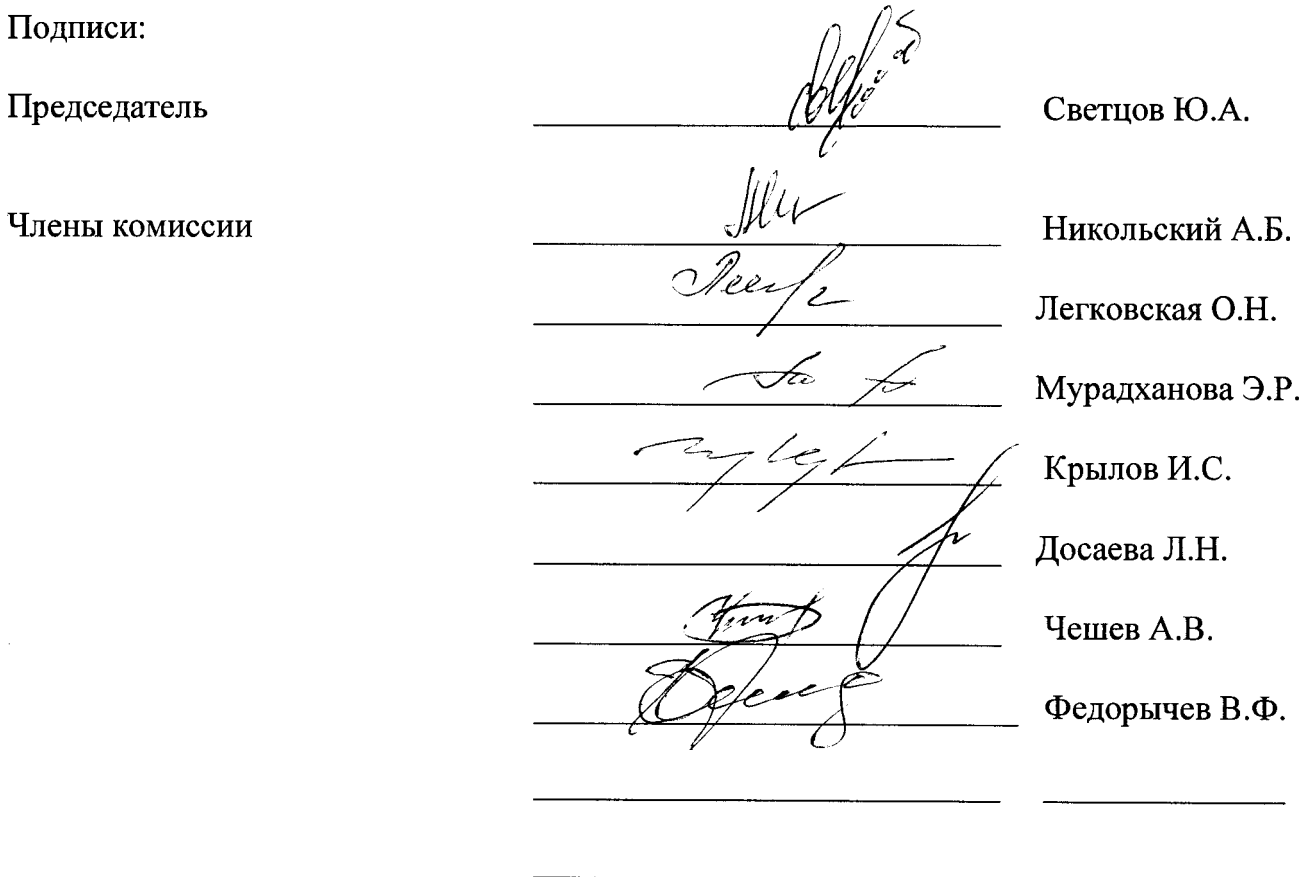 Подписи:
Председатель Светцов Ю.А.
Члены комиссии Никольский А.Б.
Легковская О.Н.
Мурадханова Э.Р.
Крылов И.С.
Досаева Л.Н.
Чешев А.В.
Федорычев В.Ф.